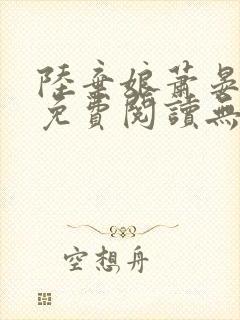 陸棄娘蕭晏
免費閱讀無
空想舟